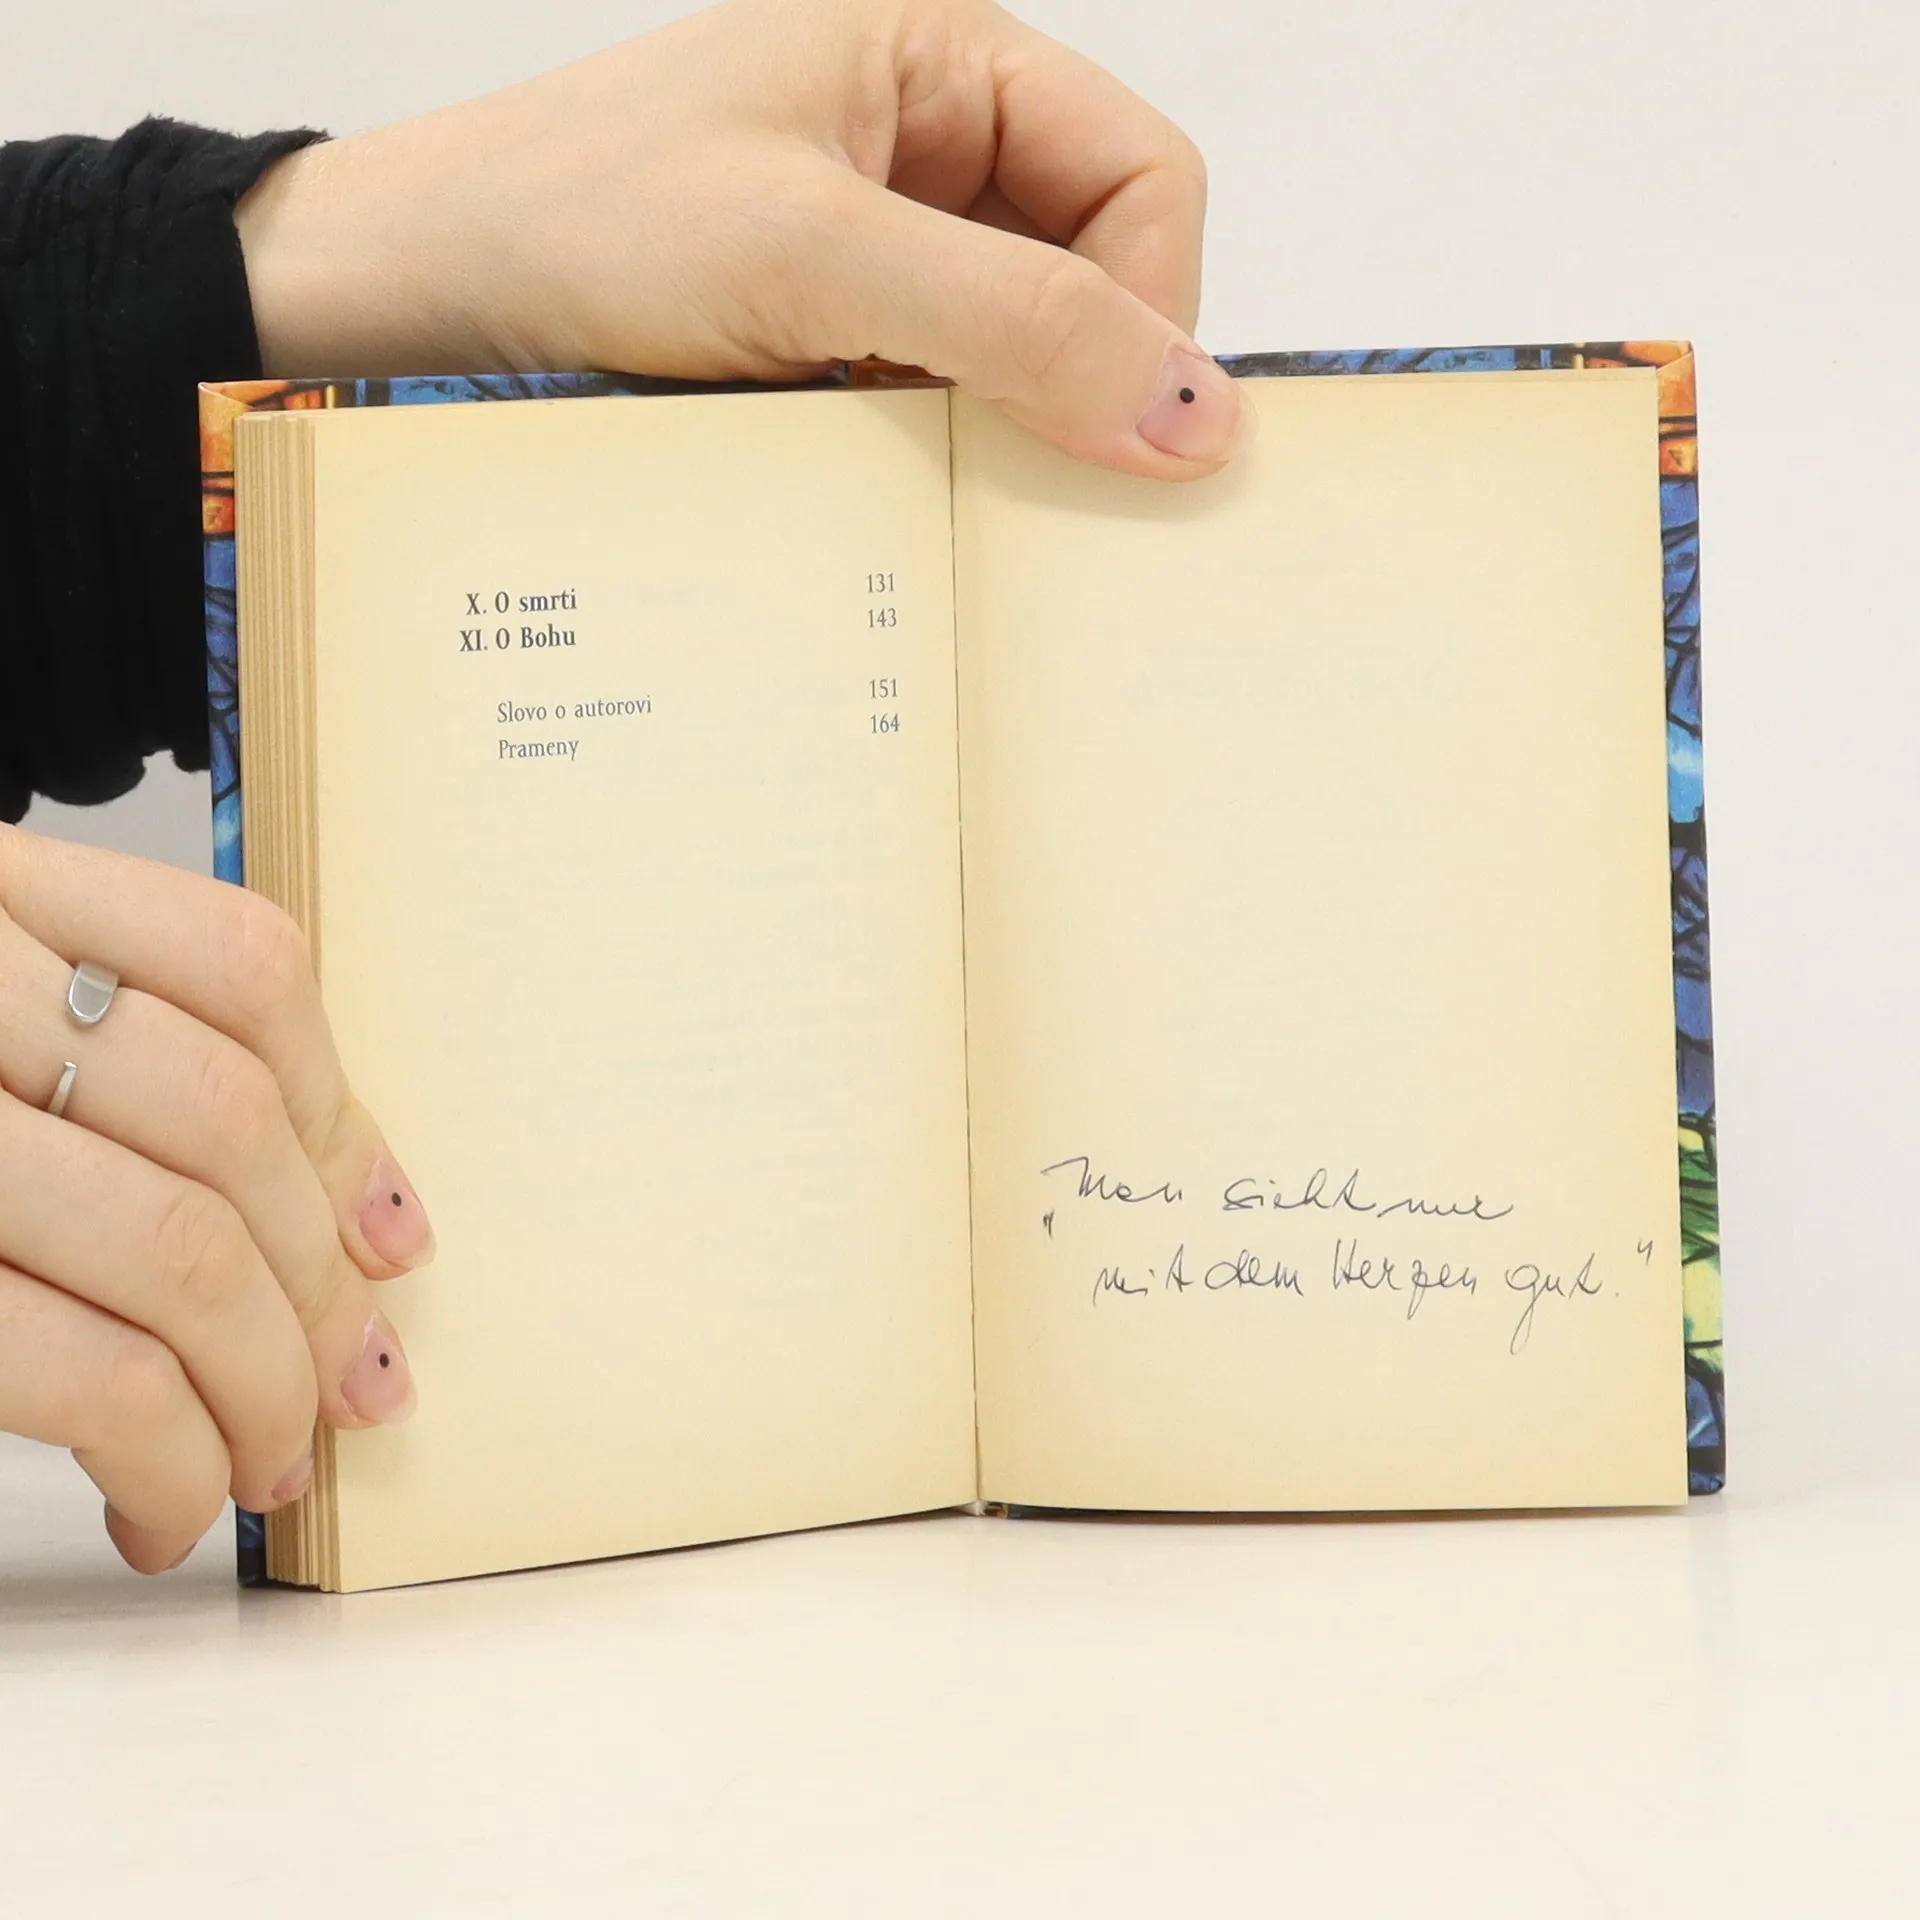 X. O smrti 131
XI. O Bohu 143
Slovo o autorovi 151
Prameny 164
„Man sieht nur
mit dem Herzen gut.“